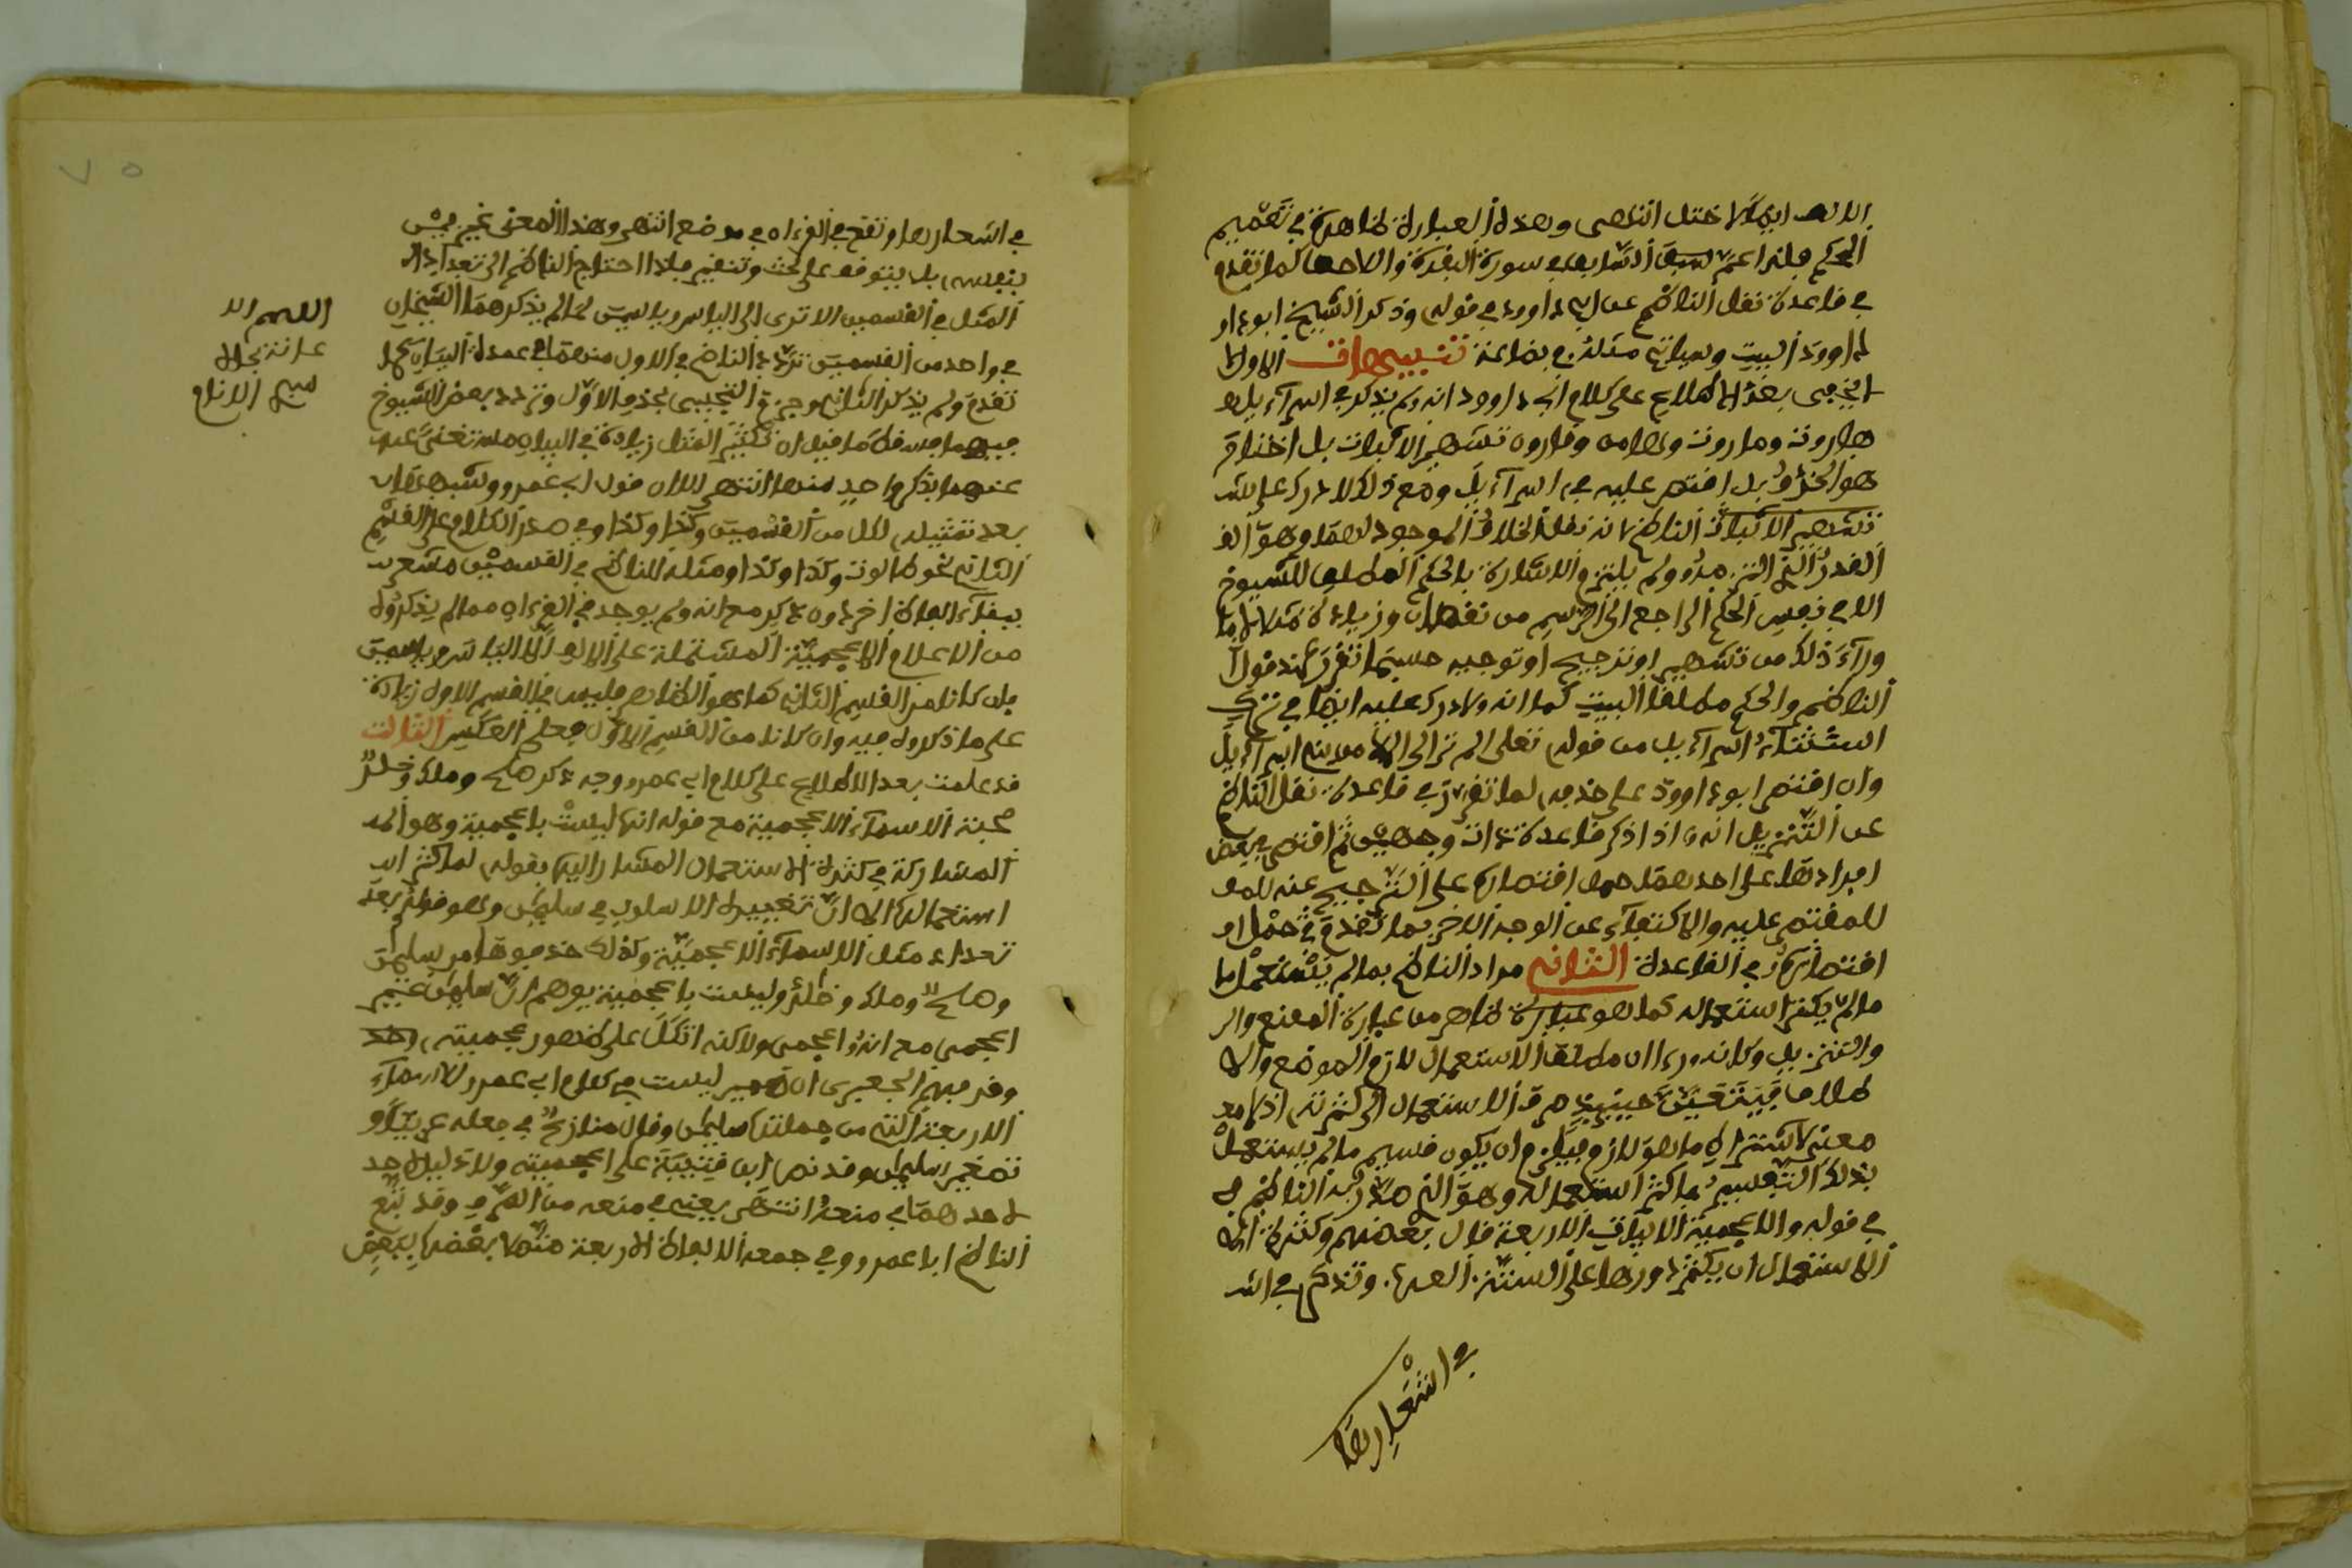 الالف ايضا لاختل انتهى وهذه العبارة ظاهرة في تعميم
الحكم فلذا عمّ السابق في سورة البقرة والاحما كما تقدم
في قاعدة نقل الناظم عن ابي داوود في قوله وذكر الشيخ ابو داو
داوود البيت وسياتي مثله في بضاعة تنبيهات الاول
بعد الاطلاع على كلام ابي داوود انه لم يذكر في اسراءيل
هاروت وماروت وهامان وقارون تشهير الاثبات بل اختار
هو الحذف بل اقتصر عليه في اسراءيل ومع ذلك لا درك على
تشهير الاثبات الناظم لانه نقل الخلاف الموجود لهما وهو
القدر الذي التزمه ولم يلتزم والاشارة بالحكم المطلق للشيوخ
الا في نفس الحكم الراجع الى الرسم من نقصان وزيادة مثلا لا ما
وراء ذلك من تشهير او ترجيح او توجيه حسبما تقرر عند قول
الناظم والحكم مطلقا البيت كما انه لا درك عليه ايضا في ترك
استثناء اسراءيل من قوله تعلى الم تر الى الملا من بني اسراءيل
وان اقتصر ابو داوود على حذفه لما تقرر في قاعدة نقل الناظم
عن التنزيل انه اذا ذكر قاعدة ذات وجهين ثم اقتصر في بعض
افرادها على احدهما حمل اقتصاره على الترجيح عنه
للمقتصر عليه والاكتفاء عن الوجه الاخر بما تقدم في حمل او
اقتصاره في القاعدة الثاني مراد الناظم بما لم يستعمل ما
ما لم يكثر استعماله كما هو عبارة ظاهر من عبارة المقنع وال
والتنزيل وكانه رءا ان مطلق الاستعمال لازم الموضع والا
طلاحا فيتعين حينيذ صرف الاستعمال الى كثرته اذ لا مع
معنى لاشتراط ما هو لازم فيلزم ان يكون قسيم ما لم يستعمل
بذلك التفسير ما كثر استعماله وهو الذي صدر به الناظم
في قوله والاعجمية الابيات الاربعة قال بعضهم وكثرة ال
الاستعمال ان يكثر دورها على السنة العرب وتقدم في الش
في اشعارها
في اشعارها وتقع في القرءان في موضع انتهى وهذا المعنى غير بين
بنفسه بل يتوقف على بحث وتنقير فلذا احتاج الناظم الى تعداد ال
المثل في القسمين الا ترى الى الياس وياسين لما لم يذكرهما الشيخان
في واحد من القسمين تردد الناظم في الاول منهما في عمدة البيان كما
تقدم ولم يذكر الثاني وجزم التجيبي بحذف الاول وتردد بعض الشيوخ
فيهما فسقط ما قيل ان تكثير المثل زيادة في البيان مستغنى عنه
عنهما بذكر واحد منها انتهى لان قول ابي عمرو وشبههما
بعد تمثيله لكل من القسمين وكذا وكذا وفي صدر الكلام على القسم
الثاني نحو طالوت وكذا وكذا ومثله للناظم في القسمين مشعر
ببقاء الفاظ اخر دون ذكر مع انه لم يوجد في القرءان مما لم يذكروه
من الاعلام الاعجمية المشتملة على الالف الا الياس وياسين
فان كانا من القسم الثاني كما هو الظاهر فليس في القسم الاول زيادة
على ما ذكروه فيه وان كانا من القسم الاول فعلى العكس الثالث
قد علمت بعد الاطلاع على كلام ابي عمرو وجه ذكر صلح وملك وخلد
صحبة الاسماء الاعجمية مع قوله انها ليست باعجمية وهو
المشاركة في كثرة الاستعمال المشار اليه بقوله لما كثر
استعماله الا ان تغييره الاسلوب في سليمن وهو قوله بعد
تعداد مثل الاسماء الاعجمية وكذلك حذفوها من سليمن
وصلح وملك وخلد وليست باعجمية يوهم ان سليمن غير
اعجمي مع انه اعجمي ولاكنه اتكل على ظهور عجميته
وقد فهم الجعبري ان ليست في كلام ابي عمرو للاسماء
الاربعة التي من جملتها سليمن وقال منازع في جعله عربيا و
تصغير سليمن وقد نص ابن قتيبة على اعجميته ولا دليل
لاحدهما في منعه انتهى يعني في منعه من الصرف وقد تبع
الناظم ابا عمرو في جمعه الالفاظ الاربعة متصلا بعضها ببعض